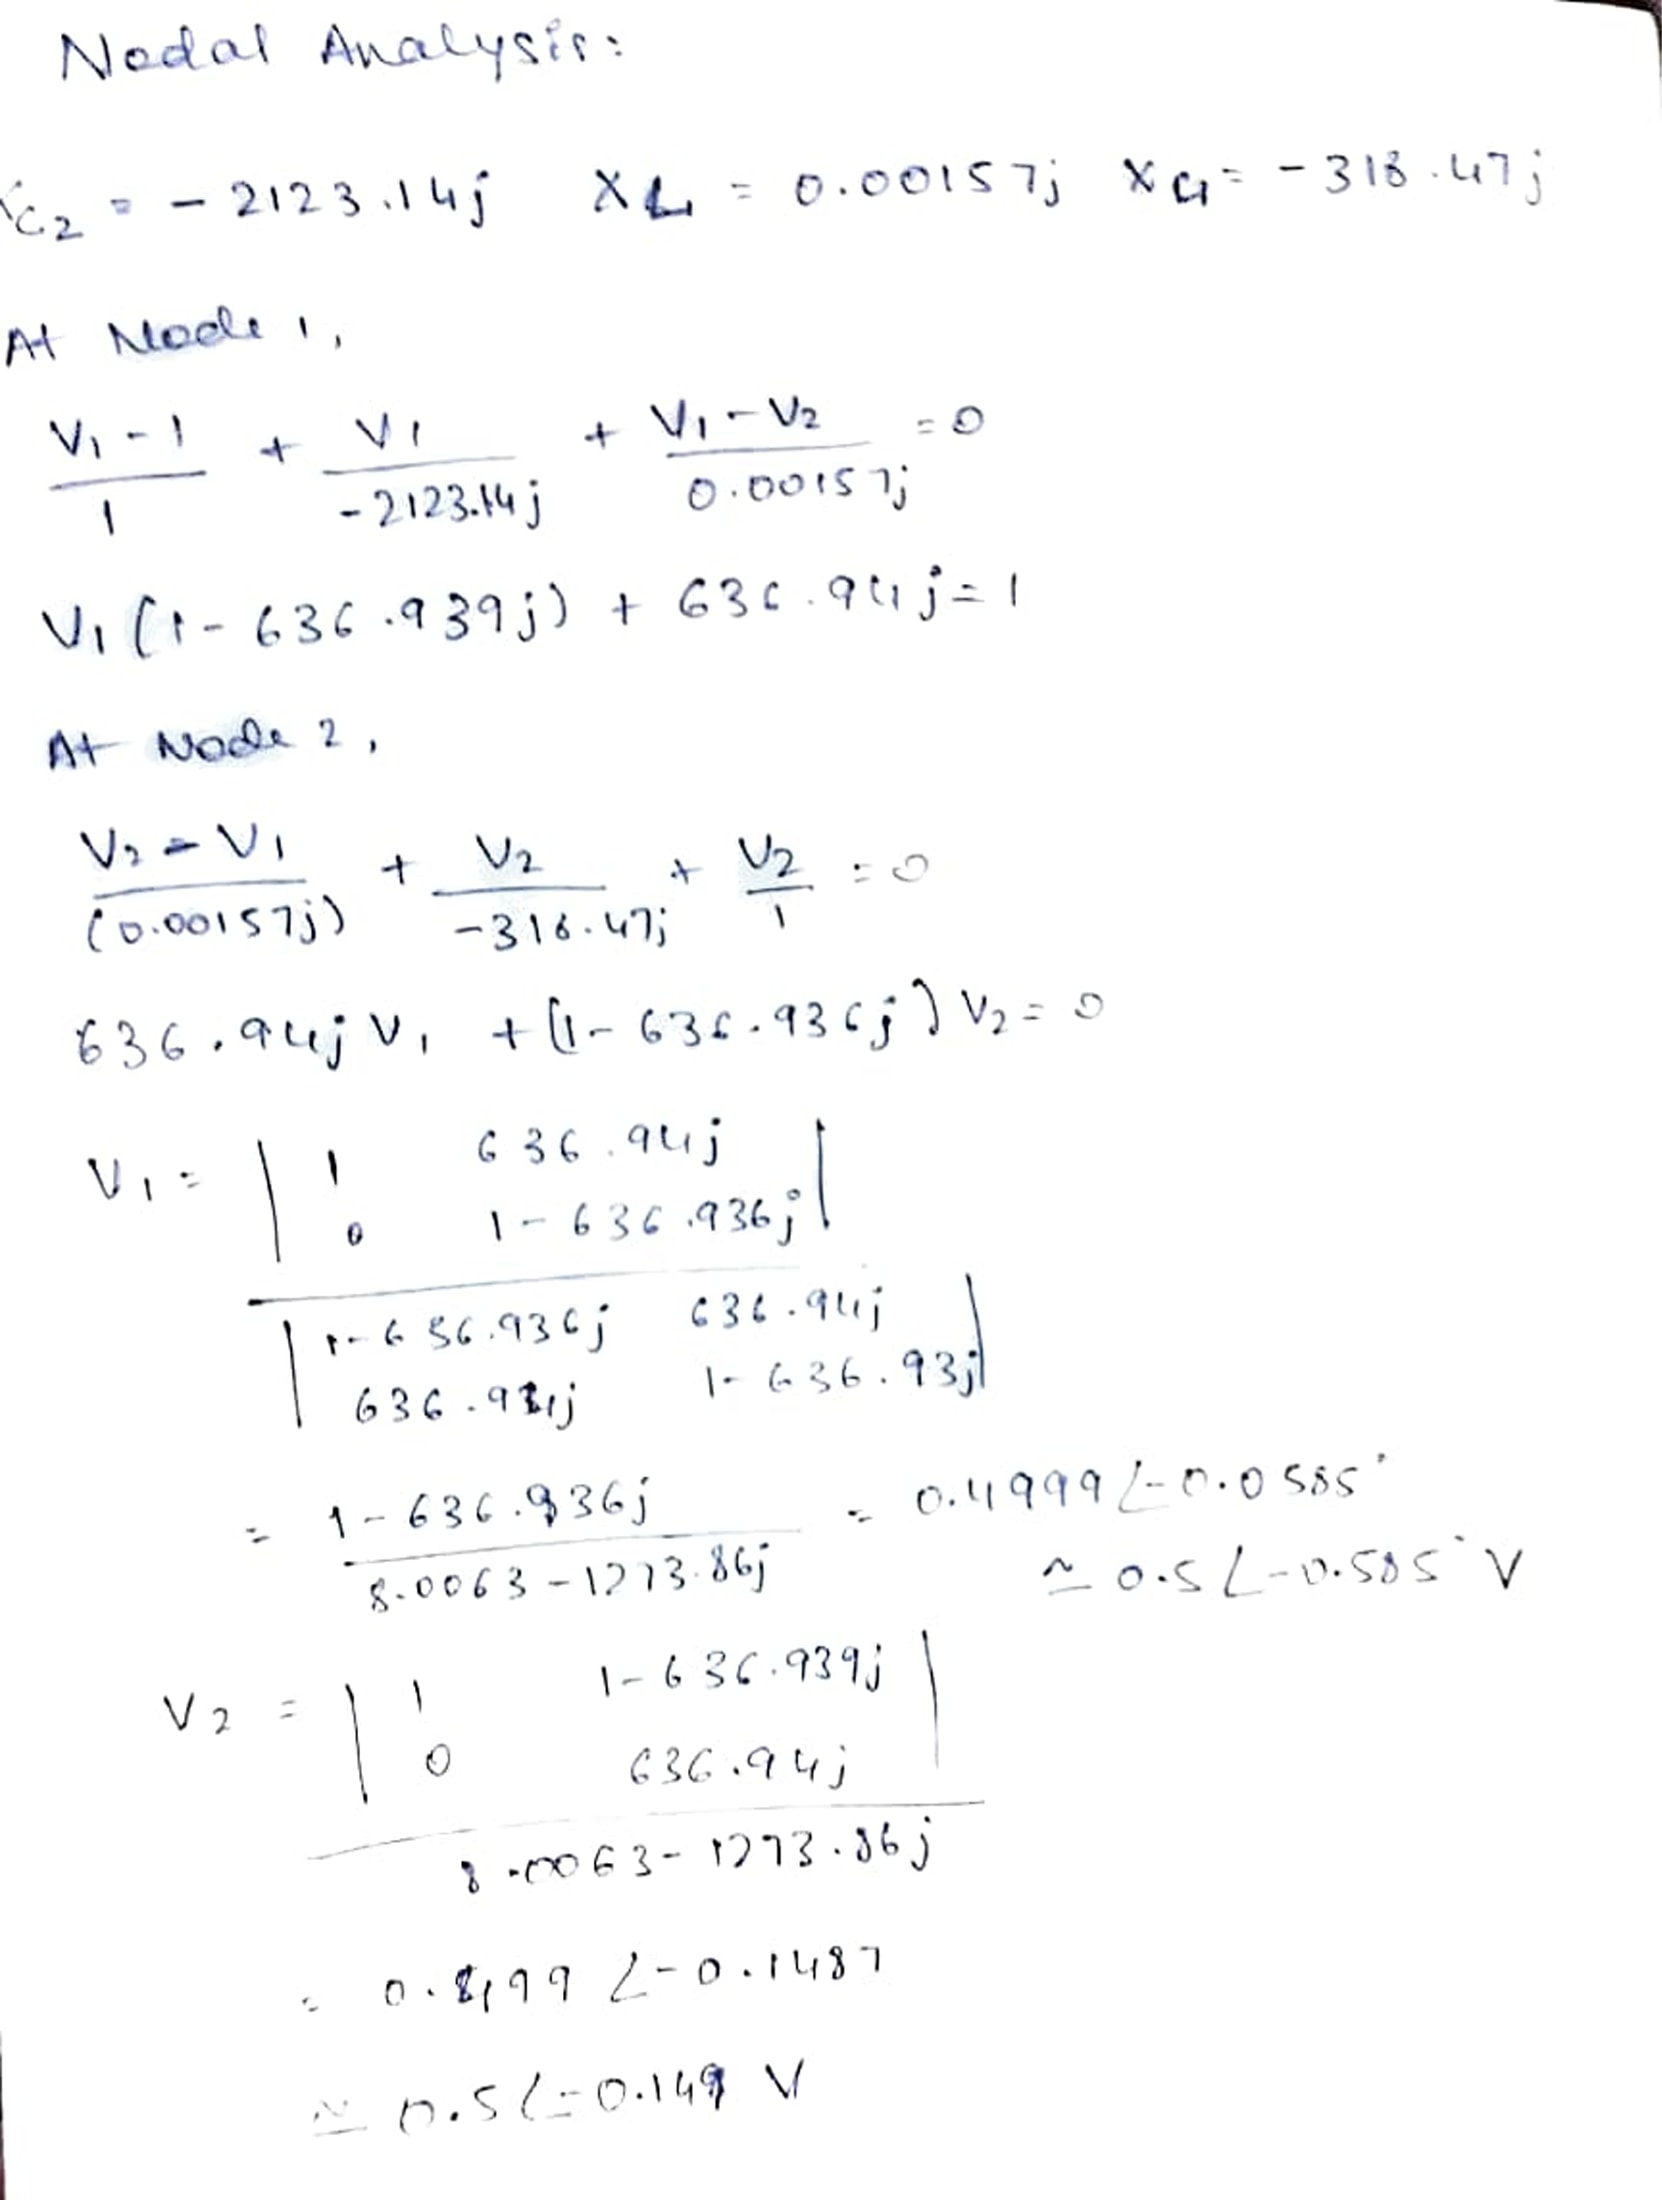 Nodal Analysis:
Xc2 = - 2123.14j XL = 0.00157j Xc1 = - 318.47j
At Node 1,
V1 - 1 / 1 + V1 / -2123.14j + V1 - V2 / 0.00157j = 0
V1 (1 - 636.939j) + 636.94j = 1
At Node 2,
V2 - V1 / (0.00157j) + V2 / -318.47j + V2 / 1 = 0
636.94j V1 + (1 - 636.936j) V2 = 0
V1 = | 1 636.94j |
0 1 - 636.936j
| 1 - 636.936j 636.94j |
636.94j 1 - 636.93j
= 1 - 636.936j / 8.0063 - 1273.86j = 0.4999 ∠-0.0585°
≃ 0.5 ∠-0.585° V
V2 = | 1 1 - 636.939j |
0 636.94j
8.0063 - 1273.86j
= 0.4199 ∠-0.1487
≃ 0.5 ∠-0.149 V